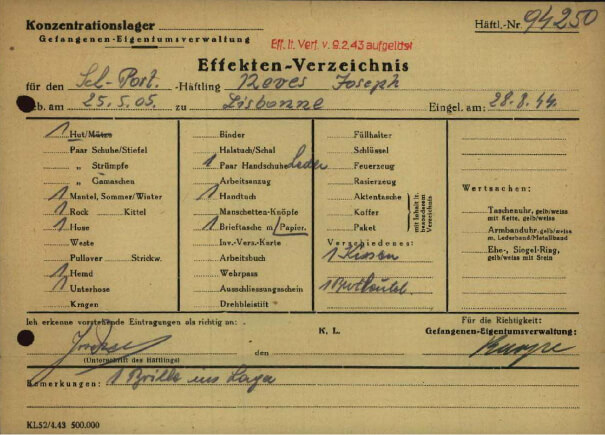 Konzentrationslager
Häftl.-Nr. 94250
Gefangenen-Eigentumsverwaltung
Eff. lt. Verf. v. 9.2.43 aufgelöst
Effekten-Verzeichnis
für den Sch.-Port. -Häftling Neves Joseph
geb. am 25.5.05. zu Lisbonne Eingel. am: 28.8.44.
1 Hut/Mütze
Paar Schuhe/Stiefel
„ Strümpfe
„ Gamaschen
1 Mantel, Sommer/Winter
1 Rock Kittel
1 Hose
Weste
Pullover Strickw.
1 Hemd
1 Unterhose
Kragen
Binder
Halstuch/Schal
1 Paar Handschuhe Leder
Arbeitsanzug
1 Handtuch
Manschetten-Knöpfe
1 Brieftasche m/Papier.
Inv.-Vers.-Karte
Arbeitsbuch
Wehrpass
Ausschliessungsschein
Drehbleistift
Füllhalter
Schlüssel
Feuerzeug
Rasierzeug
Aktentasche
Koffer
Paket
mit Inhalt lt. besonderem Verzeichnis
Verschiedenes:
1 Kissen
1
Wertsachen:
Taschenuhr, gelb/weiss
mit Kette, gelb/weiss
Armbanduhr, gelb/weiss
m. Lederband/Metallband
Ehe-, Siegel-Ring,
gelb/weiss mit Stein
Ich erkenne vorstehende Eintragungen als richtig an:
K. L.
Für die Richtigkeit:
Gefangenen-Eigentumsverwaltung:
(Unterschrift des Häftlings)
den
Bemerkungen: 1 Brille ins Lager
KL52/4.43 500.000